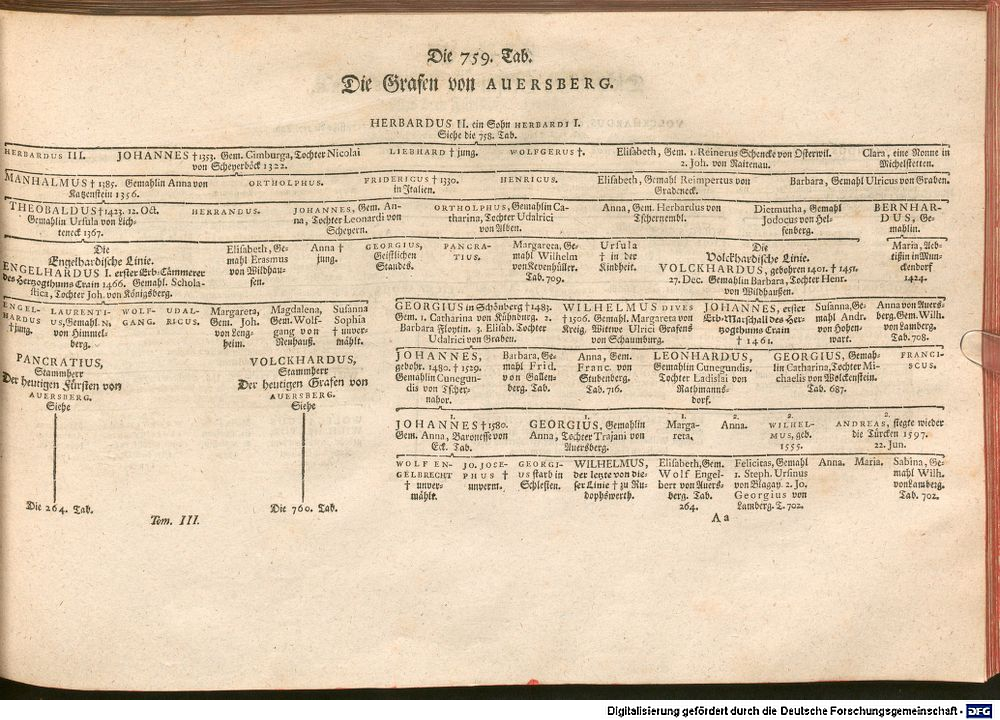 Die 759. Tab.
Die Grafen von AUERSBERG.
HERBARDUS II. ein Sohn HERBARDI I.
Siehe die 758. Tab.
HERBARDUS III.
JOHANNES † 1353. Gem. Cimburga, Tochter Nicolai
von Scheyerböck 1322.
LIEBHARD † jung.
WOLFGERUS †.
Elisabeth, Gem. 1. Reinerus Schencke von Osterwif.
2. Joh. von Raitenau.
Clara, eine Nonne in
Michelstetten.
MANHALMUS † 1385. Gemahlin Anna von
Katzenstein 1356.
ORTHOLPHUS.
FRIDERICUS † 1330.
in Italien.
HENRICUS.
Elisabeth, Gemahl Reimpertus von
Grabeneck.
Barbara, Gemahl Ulricus von Graben.
THEOBALDUS † 1423. 12. Oct.
Gemahlin Ursula von Lich-
teneck 1367.
HERRANDUS.
JOHANNES, Gem. An-
na, Tochter Leonardi von
Scheyern.
ORTHOLPHUS, Gemahlin Ca-
tharina, Tochter Udalrici
von Alben.
Anna, Gem. Herbardus von
Tschernembl.
Dietmutha, Gemahl
Jodocus von Hel-
fenberg.
BERNHAR-
DUS, Ge-
mahlin.
Die
Engelhardische Linie.
ENGELHARDUS I. erster Erb-Cämmerer
des Herzogthums Crain 1466. Gemahl. Schola-
stica, Tochter Joh. von Königsberg.
Elisabeth, Ge-
mahl Erasmus
von Wildhau-
sen.
Anna †
jung.
GEORGIUS,
Geistlichen
Standes.
PANCRA-
TIUS.
Margareta, Ge-
mahl Wilhelm
von Kevenhüller.
Tab. 709.
Ursula
† in der
Kindheit.
Die
Volckhardische Linie.
VOLCKHARDUS, gebohren 1401. † 1451.
27. Dec. Gemahlin Barbara, Tochter Henr.
von Wildhaußen.
Maria, Aeb-
tißin in Mun-
ckendorf
1424.
ENGEL-
HARDUS
† jung.
LAURENTI-
US, Gemahl. N.
von Himmel-
berg.
WOLF-
GANG.
UDAL-
RICUS.
Margareta,
Gem. Joh.
von Leng-
heim.
Magdalena,
Gem. Wolf-
gang von
Neuhauß.
Susanna
Sophia
† unver-
mählt.
GEORGIUS in Schönberg † 1483.
Gem. 1. Catharina von Kühnburg. 2.
Barbara Floytin. 3. Elisab. Tochter
Udalrici von Graben.
WILHELMUS DIVES
† 1506. Gemahl. Margareta von
Kreig, Wittwe Ulrici Grafens
von Schaumburg.
JOHANNES, erster
Erb-Marschall des Her-
zogthums Crain
† 1461.
Susanna, Ge-
mahl Andr.
von Hohen-
wart.
Anna von Auers-
berg. Gem. Wilh.
von Lamberg.
Tab. 708.
PANCRATIUS,
Stammherr
Der heutigen Fürsten von
AUERSBERG.
Siehe
VOLCKHARDUS,
Stammherr
Der heutigen Grafen von
AUERSBERG.
Siehe
JOHANNES,
gebohr. 1480. † 1529.
Gemahlin Cunegun-
dis von Tscher-
nahor.
Barbara, Ge-
mahl Frid.
von Gallen-
berg. Tab.
Anna, Gem.
Franc. von
Stubenberg.
Tab. 716.
LEONHARDUS,
Gemahlin Cunegundis.
Tochter Ladislai von
Rathmanns-
dorf.
GEORGIUS, Gemah-
lin Catharina, Tochter Mi-
chaelis von Wolckenstein.
Tab. 687.
FRANCI-
SCUS.
1.
JOHANNES † 1580.
Gem. Anna, Baronesse von
Eck. Tab.
1.
GEORGIUS, Gemahlin
Anna, Tochter Trajani von
Auersberg.
1.
Marga-
reta,
2.
Anna.
2.
WILHEL-
MUS, geb.
1555.
2.
ANDREAS, siegte wieder
die Türcken 1597.
22. Jun.
WOLF EN-
GELBRECHT
† unver-
mählt.
JO. JOSE-
PHUS †
unverm.
GEORGI-
US starb in
Schlesien.
WILHELMUS,
der letzte von die-
ser Linie † zu Ru-
dophswerth.
Elisabeth, Gem.
Wolf Engel-
bert von Auers-
berg. Tab.
264.
Felicitas, Gemahl
1. Steph. Ursinus
von Blagay. 2. Jo.
Georgius von
Lamberg. T. 702.
Anna.
Maria.
Sabina, Ge-
mahl Wilh.
von Lamberg.
Tab. 702.
Die 264. Tab.
Die 760. Tab.
Tom. III.
A a
Digitalisierung gefördert durch die Deutsche Forschungsgemeinschaft - DFG